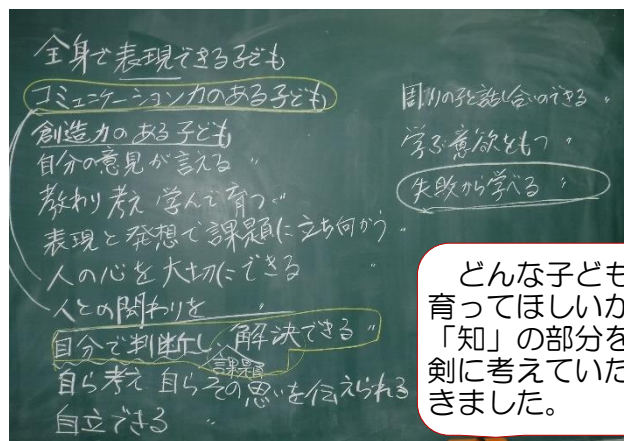 全身で表現できる子ども
コミュニケーション力のある子ども
創造力のある子ども
自分の意見が言える 〃
教わり考え学んで育つ 〃
表現と発想で課題に立ち向かう 〃
人の心を大切にできる 〃
人との関わりを 〃
自分で判断し、解決できる 〃
課題
自ら考え 自らその思いを伝えられる
自立できる 〃
周りの子と話し合いのできる 〃
学ぶ意欲をもつ 〃
失敗から学べる 〃
どんな子ども
育ってほしいか
「知」の部分を
剣に考えていた
きました。